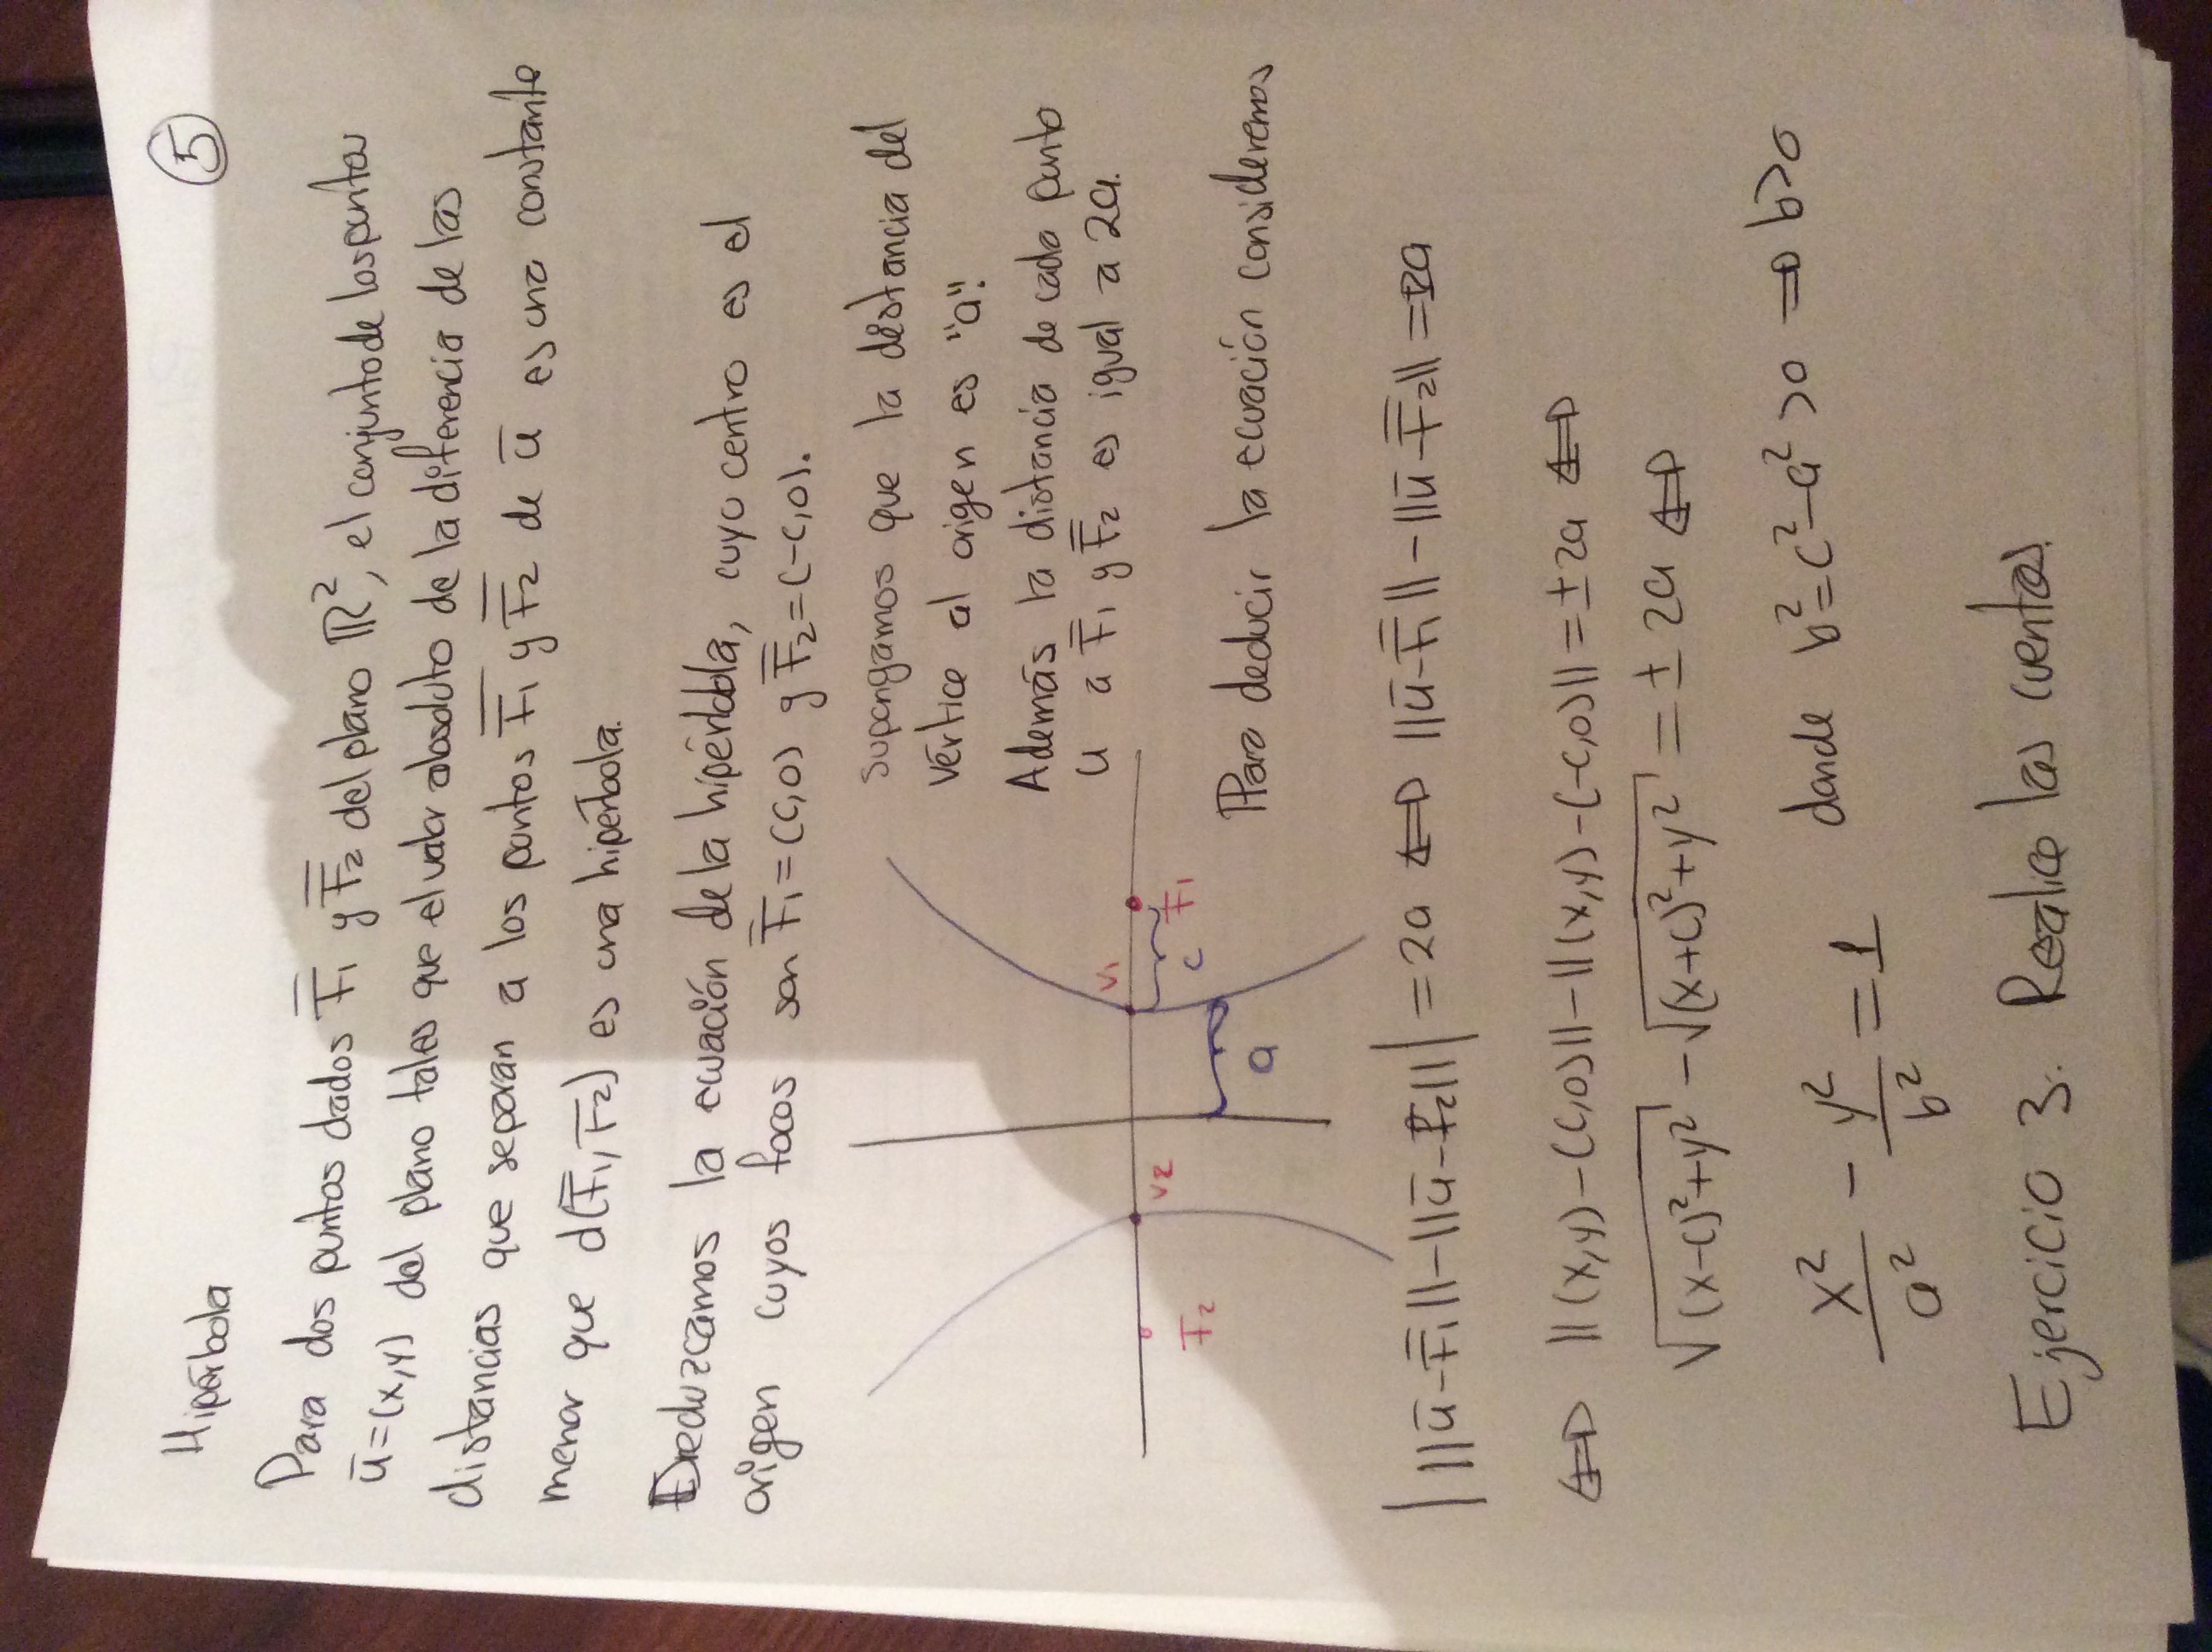 5
Hipérbola
Para dos puntos dados F̅₁ y F̅₂ del plano ℝ², el conjunto de los puntos
u̅=(x,y) del plano tales que el valor absoluto de la diferencia de las
distancias que separan a los puntos F̅₁ y F̅₂ de u̅ es una constante
menor que d(F̅₁,F̅₂) es una hipérbola.
Deduzcamos la ecuación de la hipérbola, cuyo centro es el
origen cuyos focos son F̅₁=(c,0) y F̅₂=(-c,0).
Supongamos que la distancia del
vértice al origen es "a".
Además la distancia de cada punto
u a F̅₁ y F̅₂ es igual a 2a.
Para deducir la ecuación consideremos
F₂
V₂
V₁
F₁
c
a
| ||u̅-F̅₁||-||u̅-F̅₂|| | = 2a ⟺ ||u̅-F̅₁||-||u̅-F̅₂|| = ±2a
⟺ ||(x,y)-(c,0)||-||(x,y)-(-c,0)|| = ±2a ⟺
√(x-c)²+y² - √(x+c)²+y² = ±2a ⟺
x²/a² - y²/b² = 1 donde b²=c²-a²>0 ⟹ b>0
Ejercicio 3. Realice las cuentas.